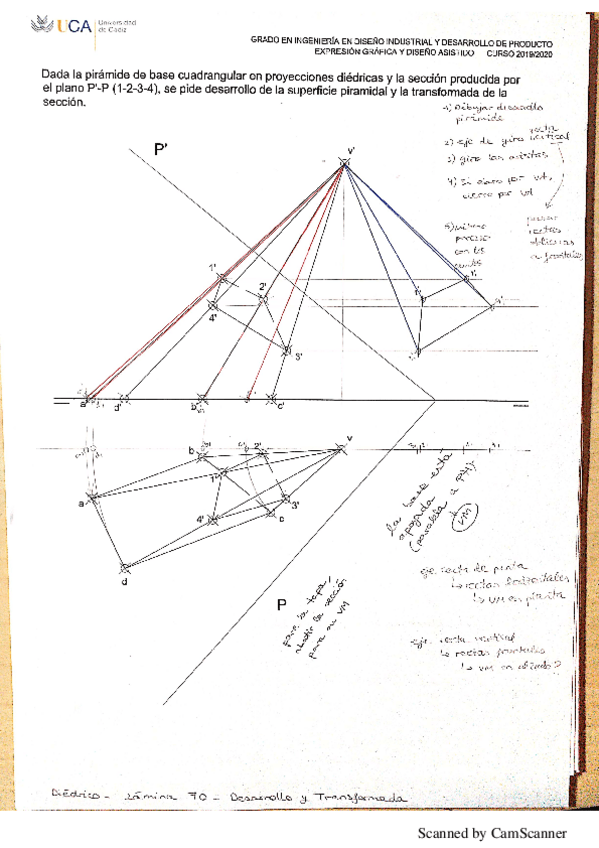 UCA
Universidad
de Cádiz
GRADO EN INGENIERÍA EN DISEÑO INDUSTRIAL Y DESARROLLO DE PRODUCTO
EXPRESIÓN GRÁFICA Y DISEÑO ASISTIDO CURSO 2019/2020
Dada la pirámide de base cuadrangular on proyecciones diédricas y la sección producida por
el plano P'-P (1-2-3-4), se pide desarrollo de la superficie piramidal y la transformada de la
sección.
1) Dibujar desarrollo
pirámide
recta
2) eje de giro vertical
3) giro las aristas
4) Si abaro por
cierro por
5)
proceso
con los
rectas
oblicuas
a frontales
P'
v'
1'
2'
4'
3'
1'
4'
a'
d'
b'
c'
b
2'
v
1'
a
3'
4'
c
d
P
la base esta
apoyada
(paralela a PH)
VM
para la tapa,
abatir la sección
para su VM
eje recta de punta
rectas horizontales
VM en planta
eje recta vertical
rectas frontales
VM en alzado?
Diédrico - Lámina 70 - Desarrollo y Transformada
Scanned by CamScanner